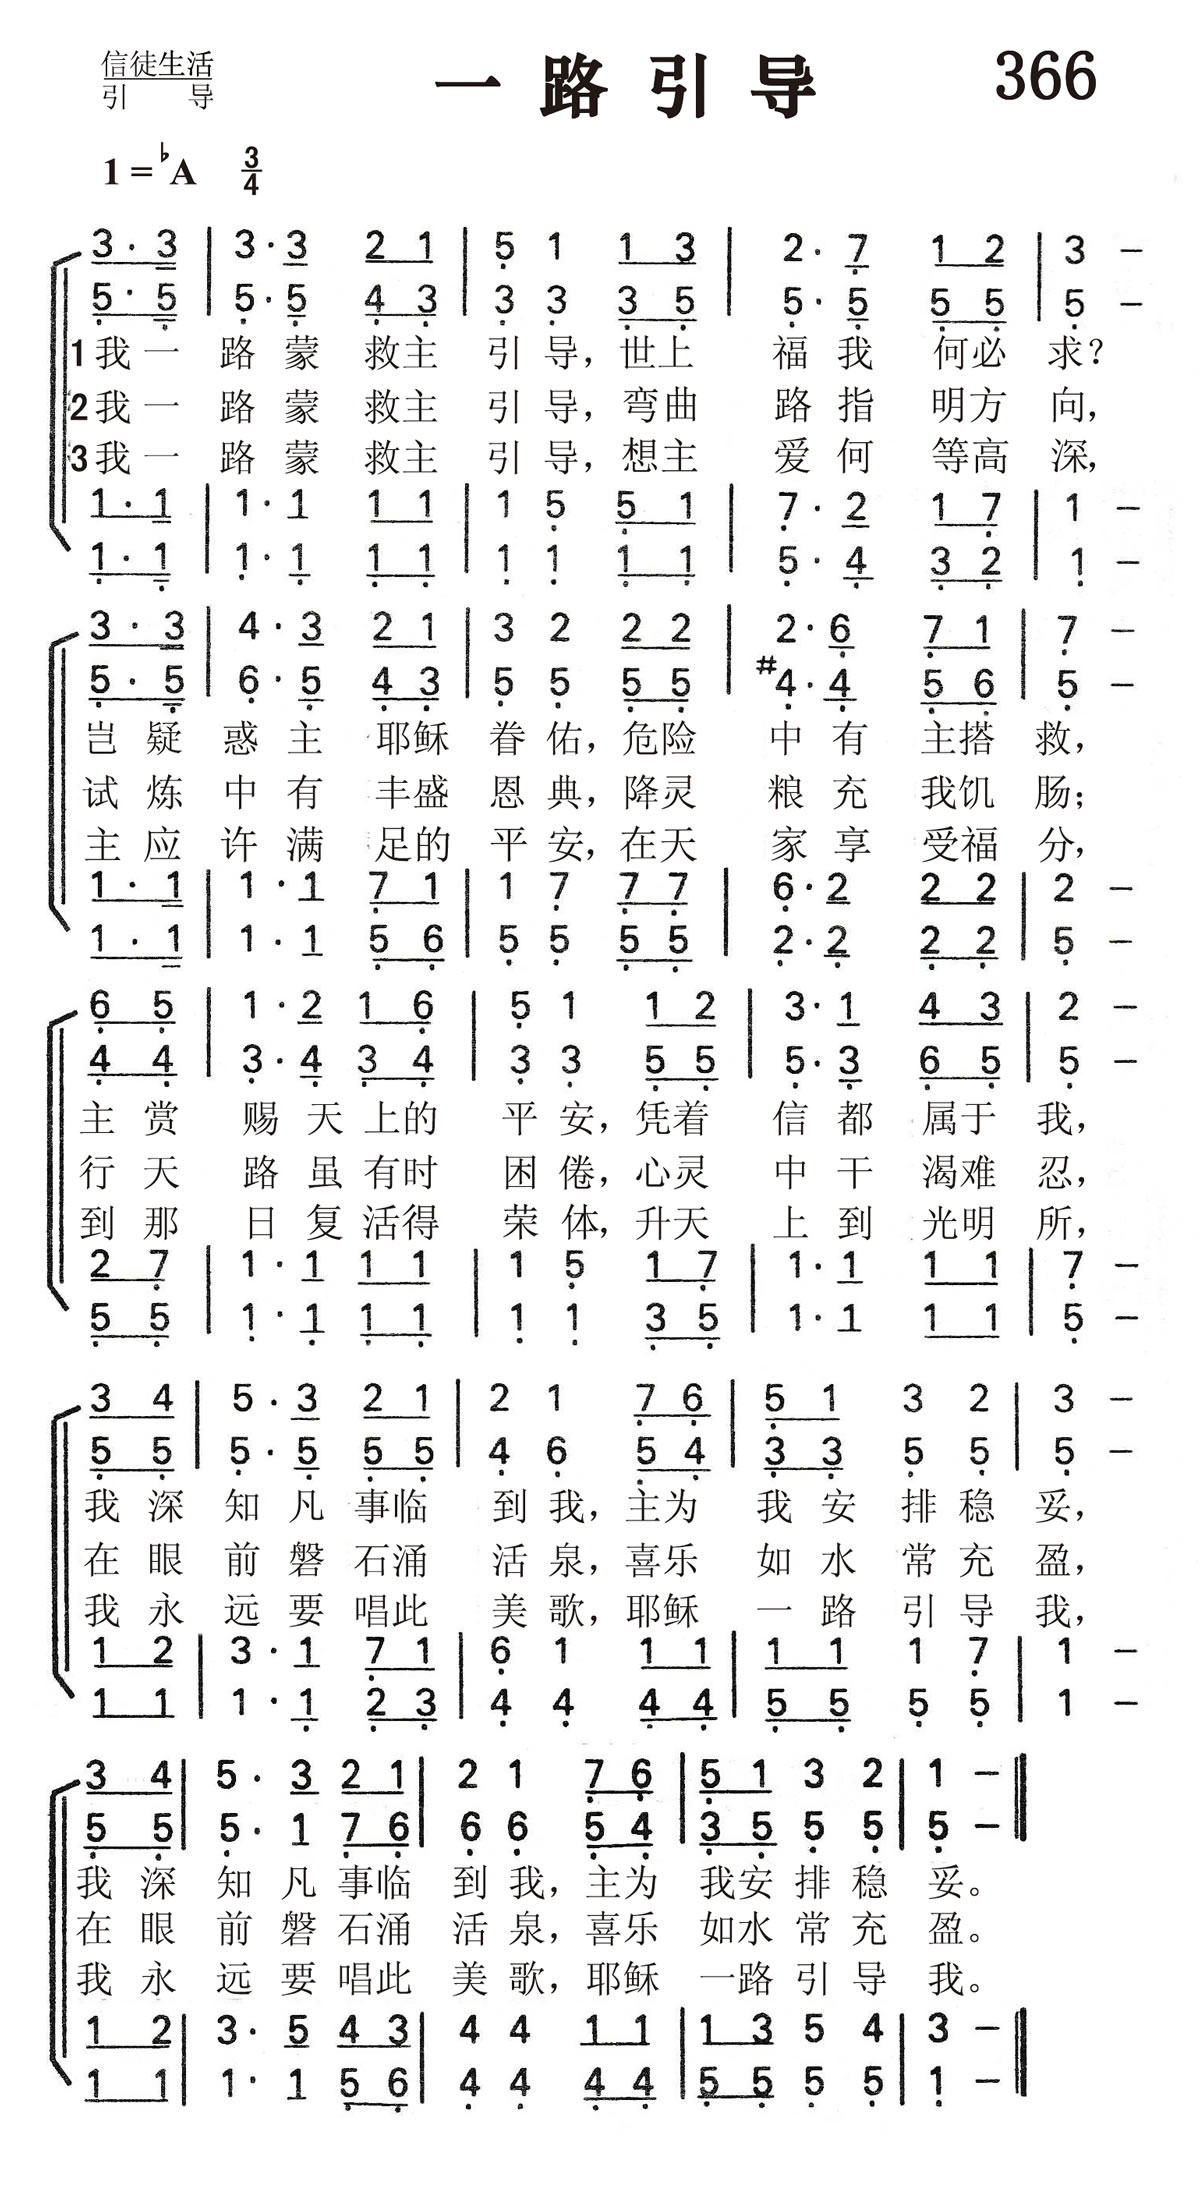 信徒生活
引 导
一路引导
366
1=♭A 3/4
3·3 | 3·3 2 1 | 5 1 1 3 | 2·7 1 2 | 3 –
5·5 | 5·5 4 3 | 3 3 3 5 | 5·5 5 5 | 5 –
1我一 路蒙 救主 引导，世上 福我 何必 求？
2我一 路蒙 救主 引导，弯曲 路指 明方 向，
3我一 路蒙 救主 引导，想主 爱何 等高 深，
1·1 | 1·1 1 1 | 1 5 5 1 | 7·2 1 7 | 1 –
1·1 | 1·1 1 1 | 1 1 1 1 | 5·4 3 2 | 1 –
3·3 | 4·3 2 1 | 3 2 2 2 | 2·6 7 1 | 7 –
5·5 | 6·5 4 3 | 5 5 5 5 | #4·4 5 6 | 5 –
岂疑 惑主 耶稣 眷佑，危险 中有 主搭 救，
试炼 中有 丰盛 恩典，降灵 粮充 我饥 肠；
主应 许满 足的 平安，在天 家享 受福 分，
1·1 | 1·1 7 1 | 1 7 7 7 | 6·2 2 2 | 2 –
1·1 | 1·1 5 6 | 5 5 5 5 | 2·2 2 2 | 5 –
6 5 | 1·2 1 6 | 5 1 1 2 | 3·1 4 3 | 2 –
4 4 | 3·4 3 4 | 3 3 5 5 | 5·3 6 5 | 5 –
主赏 赐天 上的 平安，凭着 信都 属于 我，
行天 路虽 有时 困倦，心灵 中干 渴难 忍，
到那 日复 活得 荣体，升天 上到 光明 所，
2 7 | 1·1 1 1 | 1 5 1 7 | 1·1 1 1 | 7 –
5 5 | 1·1 1 1 | 1 1 3 5 | 1·1 1 1 | 5 –
3 4 | 5·3 2 1 | 2 1 7 6 | 5 1 3 2 | 3 –
5 5 | 5·5 5 5 | 4 6 5 4 | 3 3 5 5 | 5 –
我深 知凡 事临 到我，主为 我安 排稳 妥，
在眼 前磐 石涌 活泉，喜乐 如水 常充 盈，
我永 远要 唱此 美歌，耶稣 一路 引导 我，
1 2 | 3·1 7 1 | 6 1 1 1 | 1 1 1 7 | 1 –
1 1 | 1·1 2 3 | 4 4 4 4 | 5 5 5 5 | 1 –
3 4 | 5·3 2 1 | 2 1 7 6 | 5 1 3 2 | 1 – ‖
5 5 | 5·1 7 6 | 6 6 5 4 | 3 5 5 5 | 5 – ‖
我深 知凡 事临 到我，主为 我安 排稳 妥。
在眼 前磐 石涌 活泉，喜乐 如水 常充 盈。
我永 远要 唱此 美歌，耶稣 一路 引导 我。
1 2 | 3·5 4 3 | 4 4 1 1 | 1 3 5 4 | 3 – ‖
1 1 | 1·1 5 6 | 4 4 4 4 | 5 5 5 5 | 1 – ‖